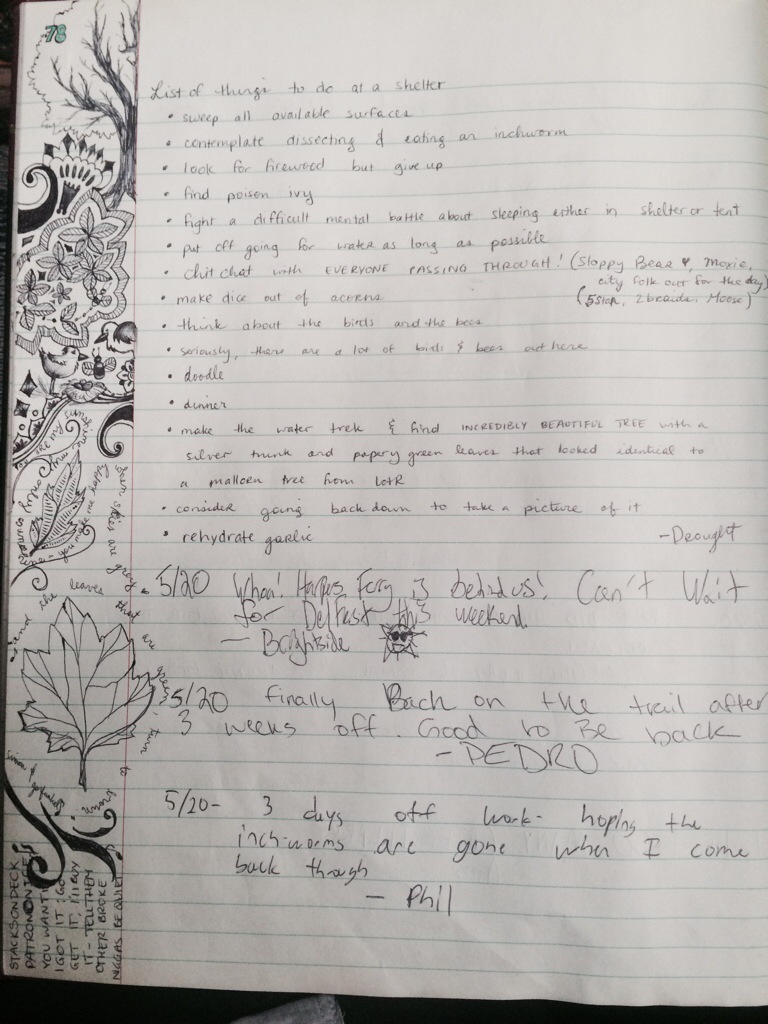 78
List of things to do at a shelter
• sweep all available surfaces
• contemplate dissecting & eating an inchworm
• look for firewood but give up
• find poison ivy
• fight a difficult mental battle about sleeping either in shelter or tent
• put off going for water as long as possible
• chit chat with EVERYONE PASSING THROUGH! (Sloppy Bear, Moxie,
city folk out for the day)
(5 Star, 2 braids, Moose)
• make dice out of acorns
• think about the birds and the bees
• seriously, there are a lot of birds & bees out here
• doodle
• dinner
• make the water trek & find INCREDIBLY BEAUTIFUL TREE with a
silver trunk and papery green leaves that looked identical to
a mallorn tree from LotR
• consider going back down to take a picture of it
• rehydrate garlic
- Drought
5/20 Whoa! Harpers Ferry is behind us! Can't Wait
for Delfest this weekend.
- Brightside
5/20 Finally Back on the trail after
3 weeks off. Good to Be back
- PEDRO
5/20- 3 days off work- hoping the
inch-worms are gone when I come
back though
- Phill
you are my sunshine my only sunshine
you make me happy when skies are grey
and the leaves that are green turn to brown
simon & garfunkel
STACKSONDECK
PATRONONICE
YOU WANT IT
I GOT IT; GO
GET IT, I'll BUY
IT - TELL THEM
OTHER BROKE
NIGGAS BE QUIET